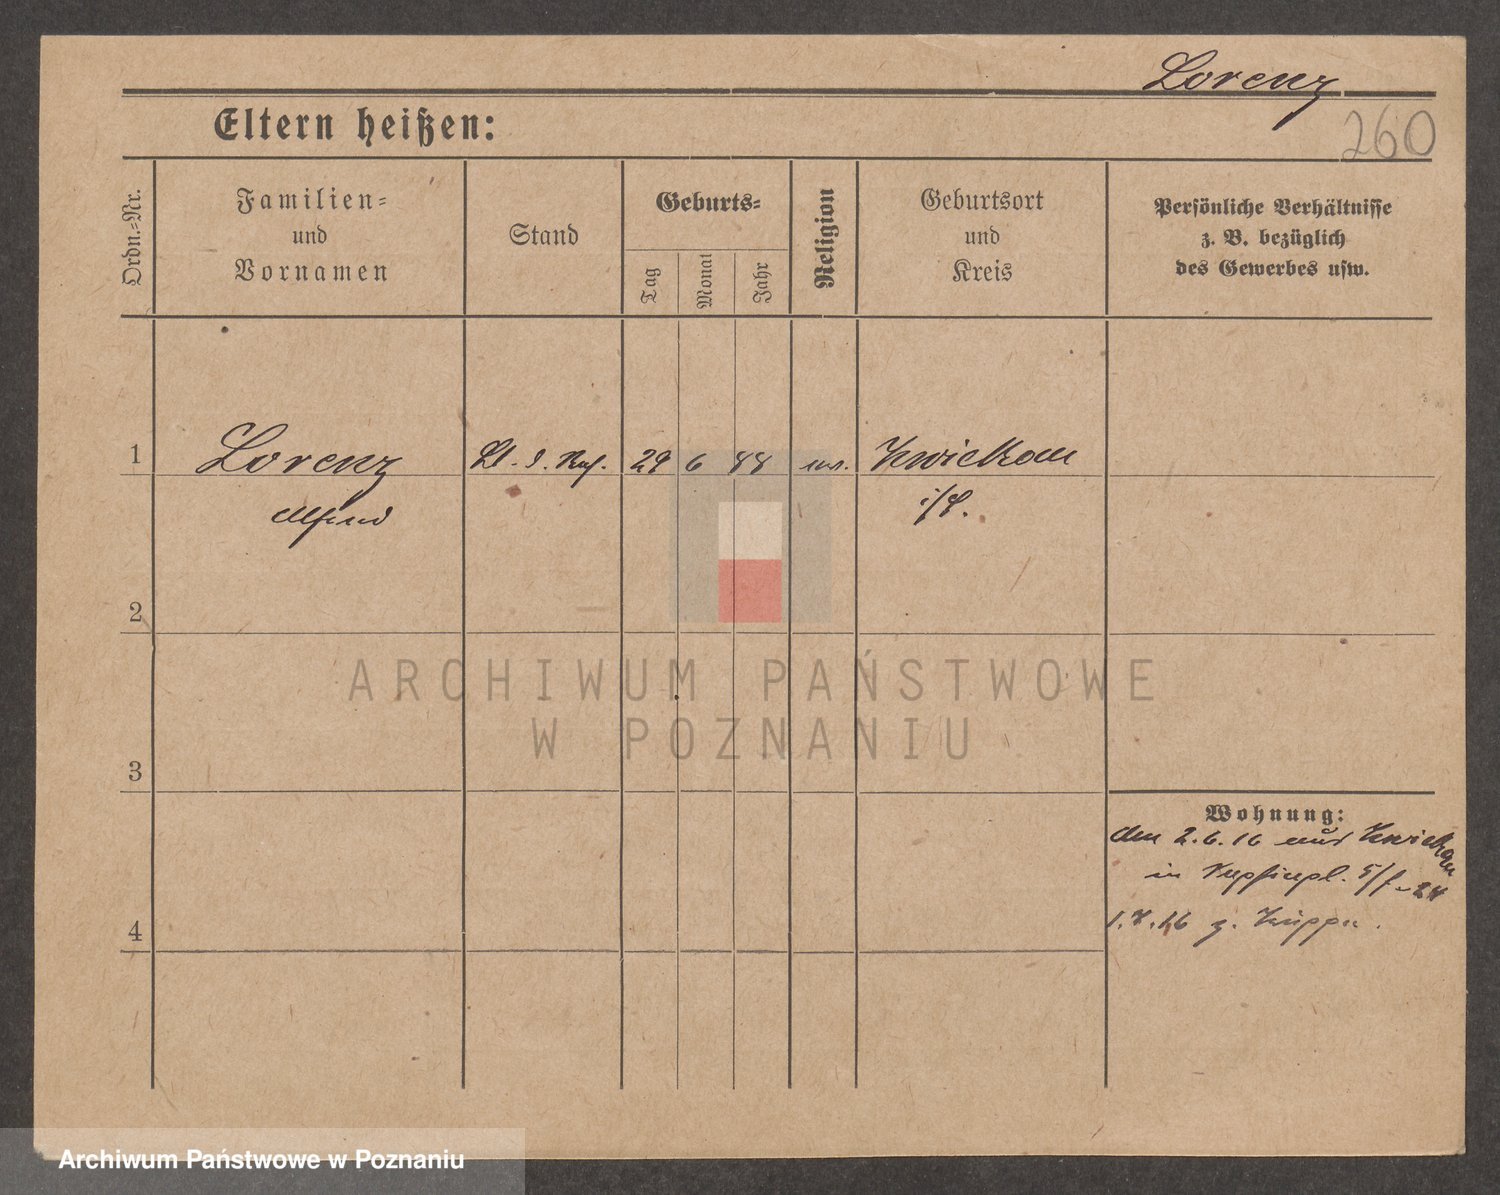 Lorenz
260
Eltern heißen:
Ordn.-Nr.
Familien-
und
Vornamen
Stand
Geburts-
Tag
Monat
Jahr
Religion
Geburtsort
und
Kreis
Persönliche Verhältnisse
z. B. bezüglich
des Gewerbes usw.
1 Lorenz Lt. d. Res. 29 6 88 Zwickau
Alfred i/S.
2
3
4
Wohnung:
den 2.6.16 aus Zwickau
in
1.7.16 z. Truppe.
ARCHIWUM PAŃSTWOWE
W POZNANIU
Archiwum Państwowe w Poznaniu